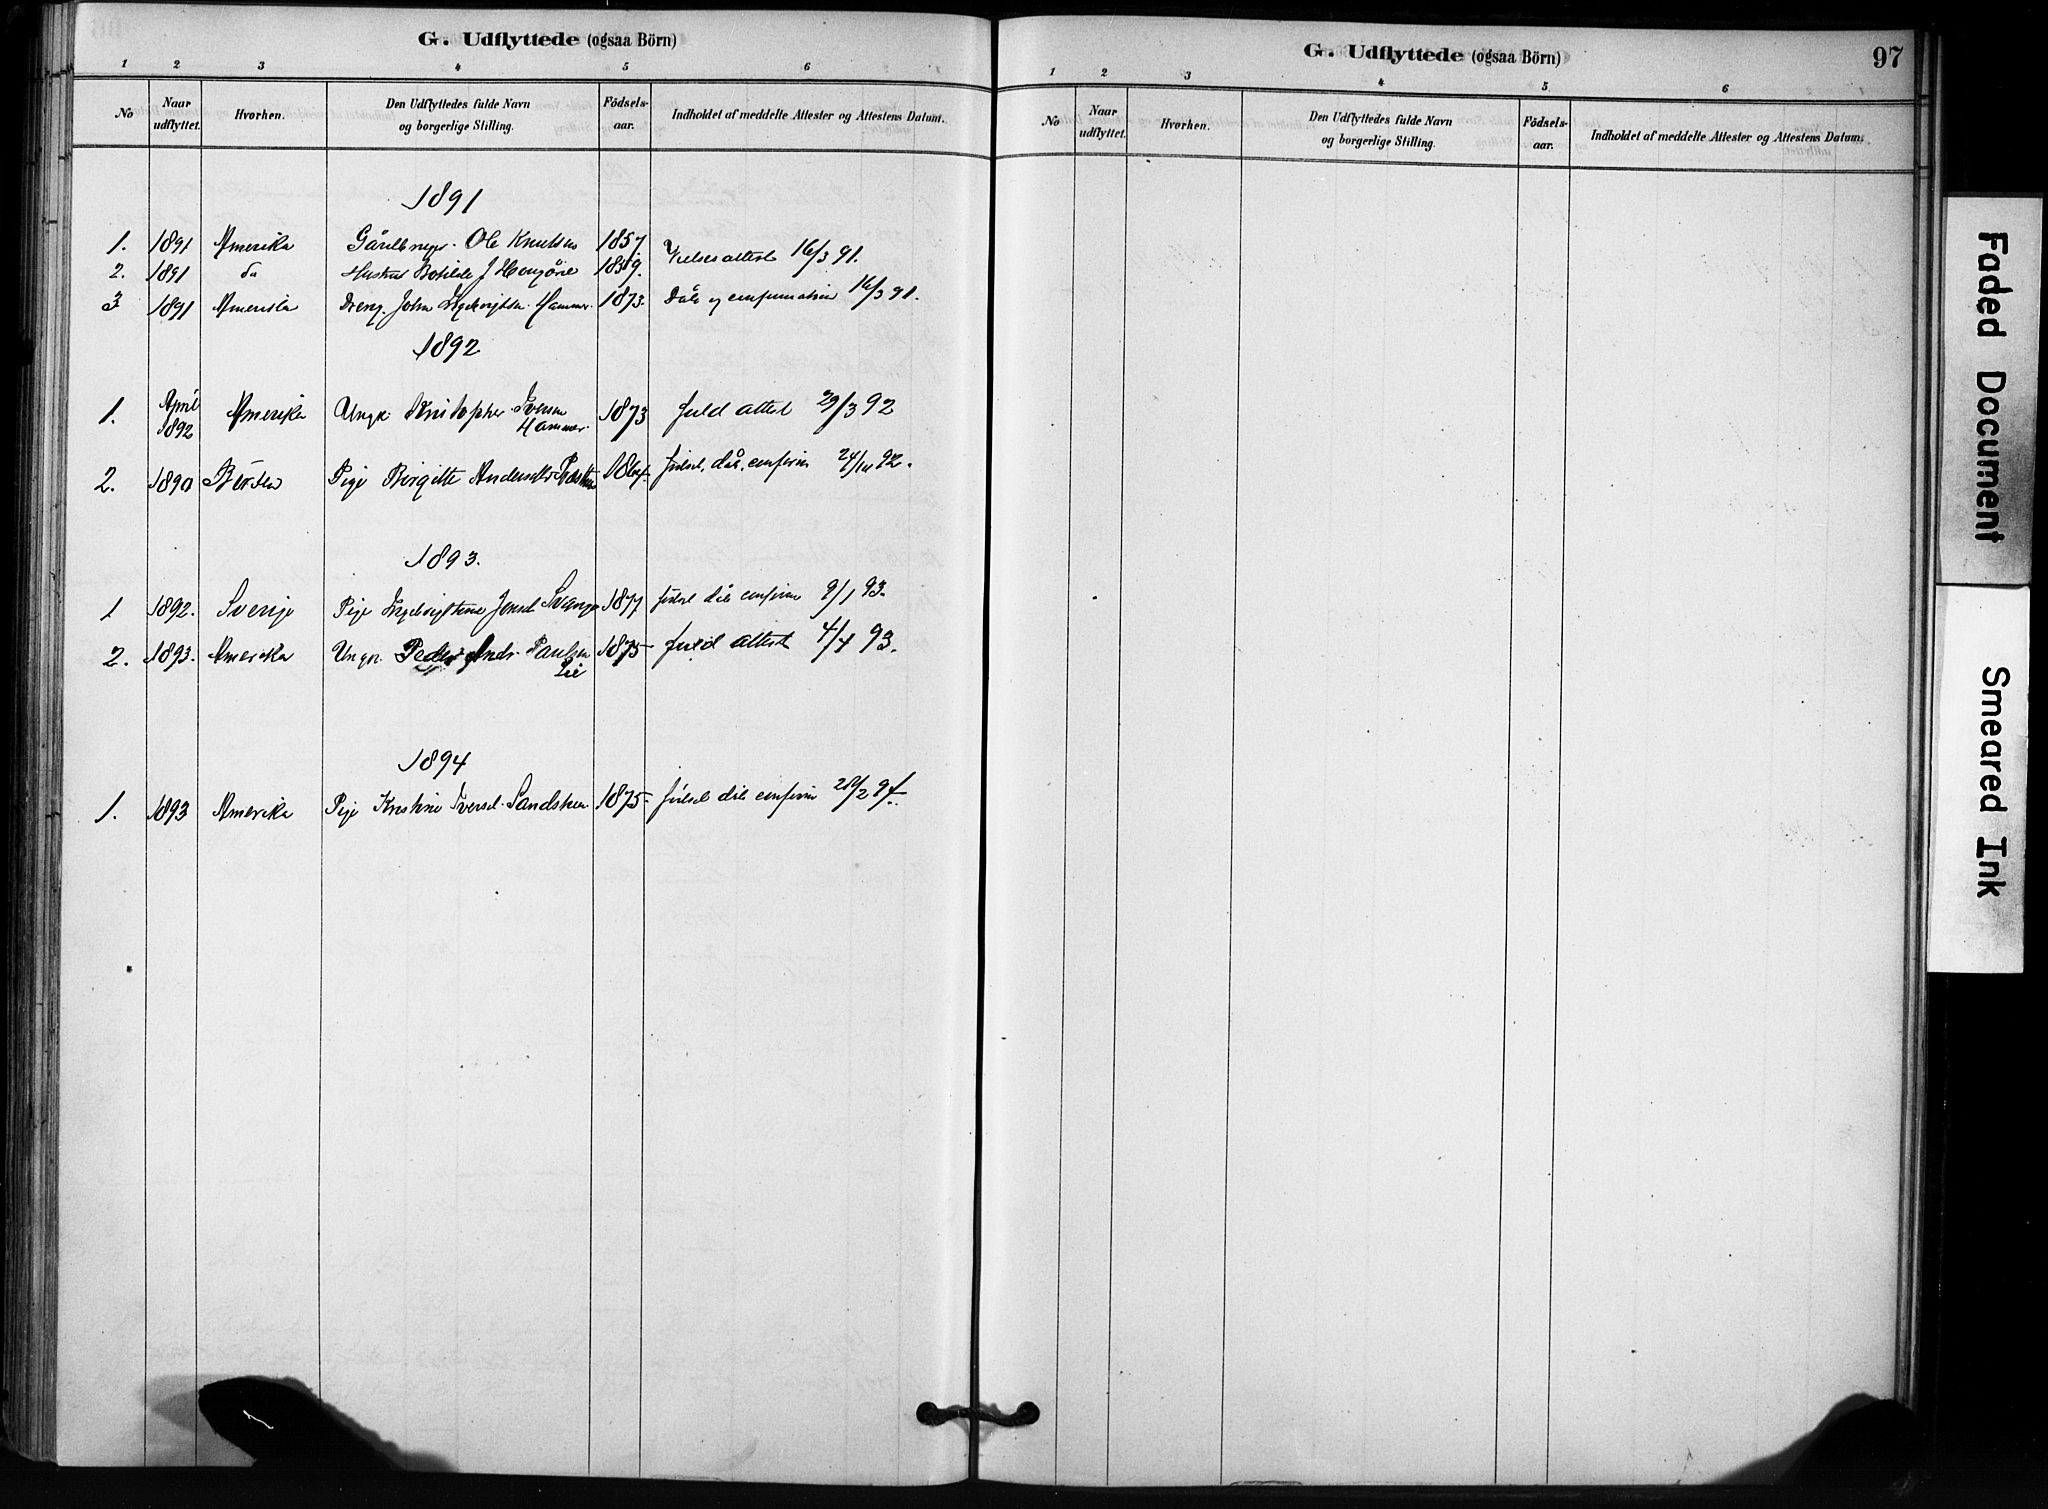 G. Udflyttede (ogsaa Börn)
1 2 3 4 5 6
No Naar udflyttet. Hvorhen. Den Udflyttedes fulde Navn og borgerlige Stilling. Födsels-aar. Indholdet af meddelte Attester og Attestens Datum.
1891
1. 1891 Amerika Ole Knutsen 1857 Vielsesattest 16/3 91.
2. 1891 do Hustru Botilde J 18
3 1891 Amerika Dreng. John Hammer. 1873. Dåb og confirmation 16/3 91.
1892
1. April 1892 Amerika Ungk. Kristopher Iversen Hammer. 1873 fuld attest 29/3 92
2. 1890 Börsen Pige Birgitte Andersdtr fødsel, dåb, confirm 92.
1893.
1 1892. Sverige Pige Jonsd. 1877 fødsel dåb confirm 9/1 93.
2. 1893. Amerika Ungk. Peder Andr. Paulsen Lie 1875 fuld attest 4/4 93.
1894
1. 1893 Amerika Pige Kristine Iversd. 1875. fødsel dåb confirm 28/2 94.
G. Udflyttede (ogsaa Börn)
97
1 2 3 4 5 6
No Naar udflyttet. Hvorhen. Den Udflyttedes fulde Navn og borgerlige Stilling. Födsels-aar. Indholdet af meddelte Attester og Attestens Datum.
Faded Document
Smeared Ink